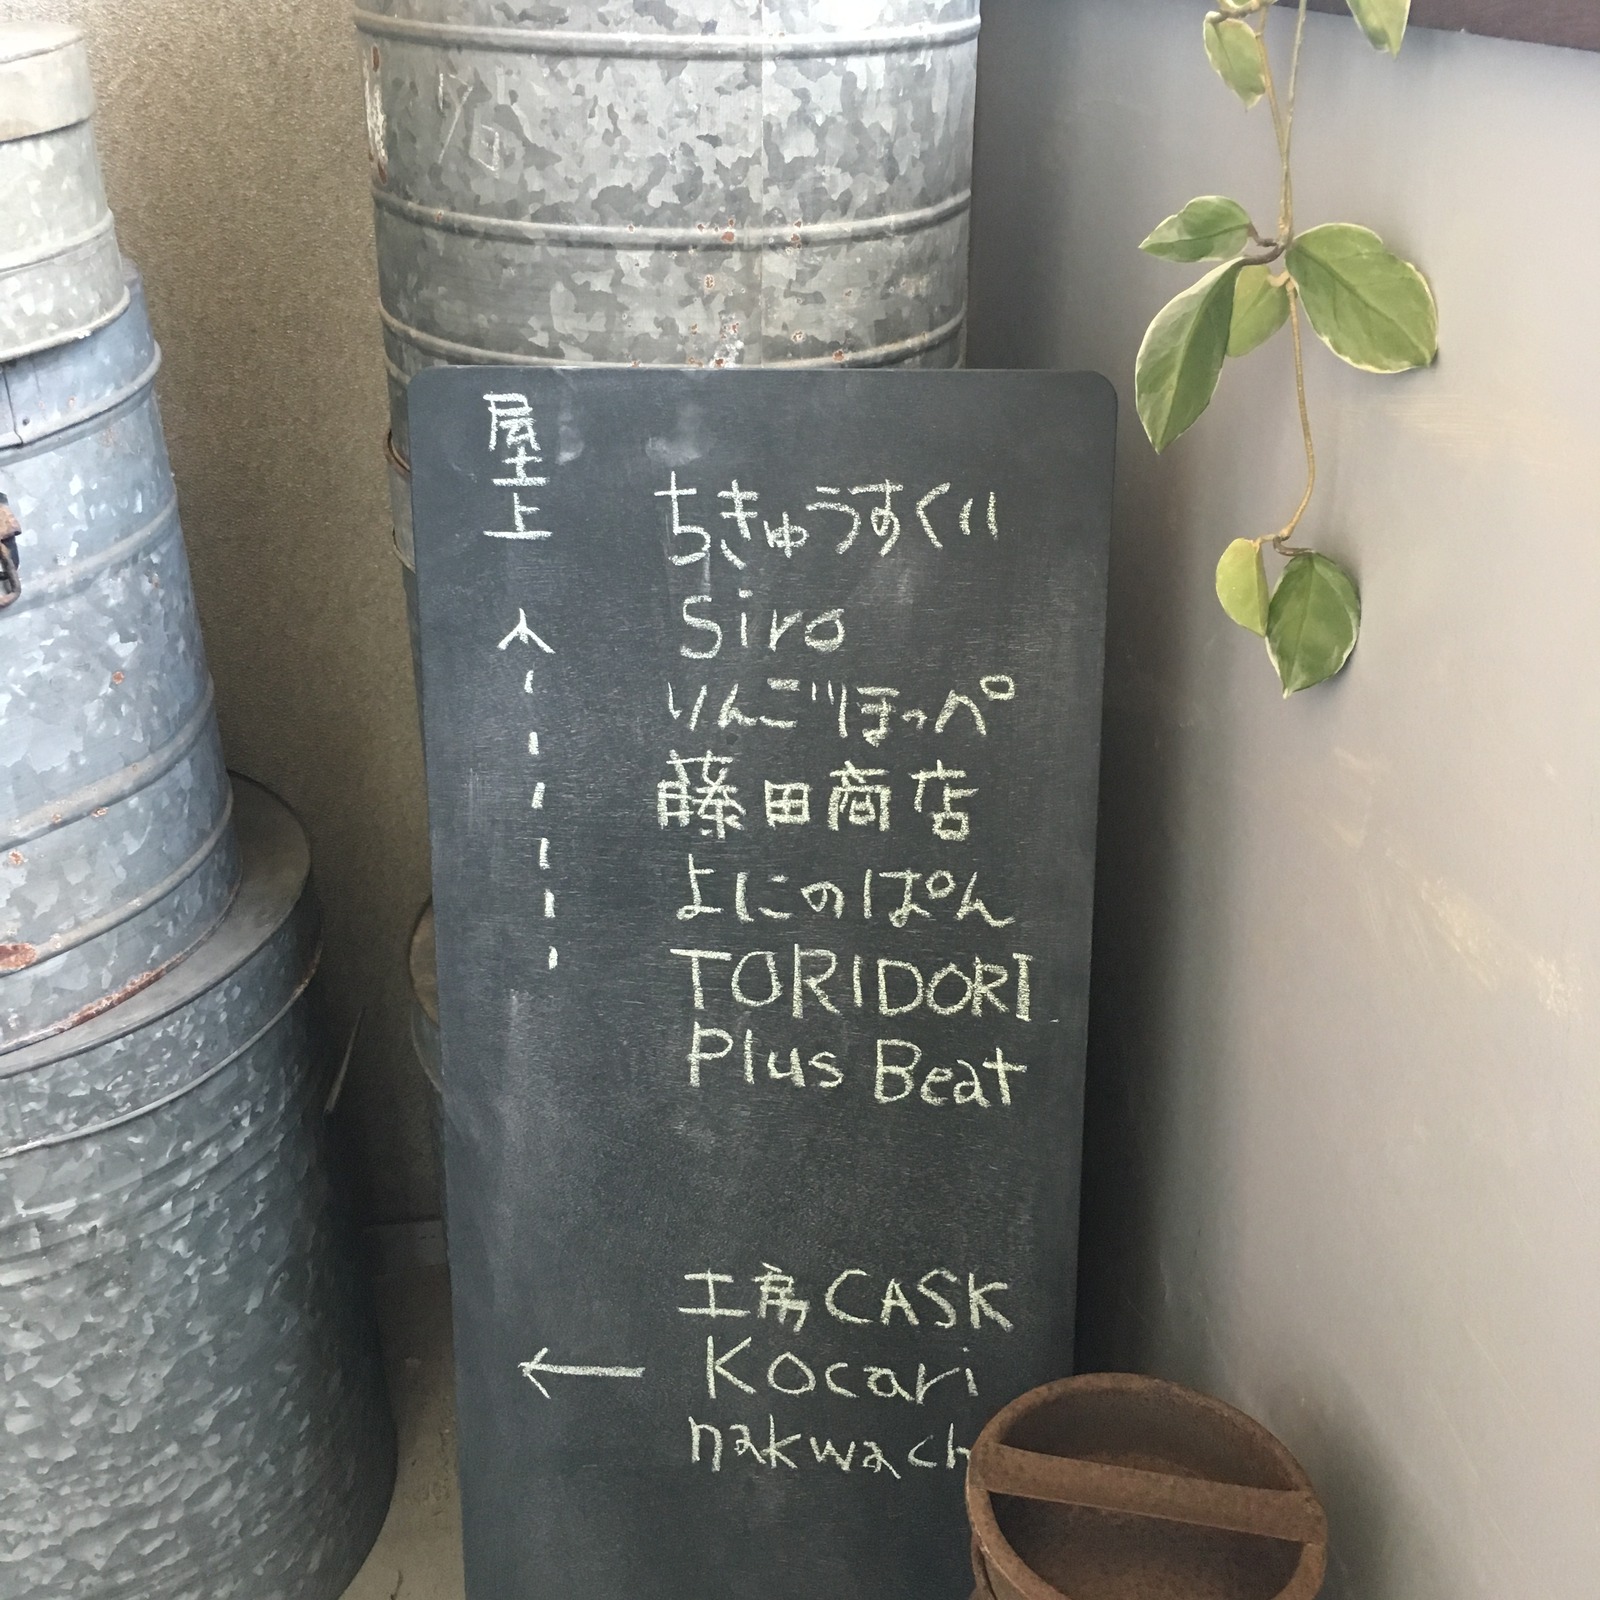 屋上
ちきゅうすくい
Siro
りんごりほっぺ
藤田商店
よにのぱん
TORIDORI
Plus Beat
工房CASK
Kocari